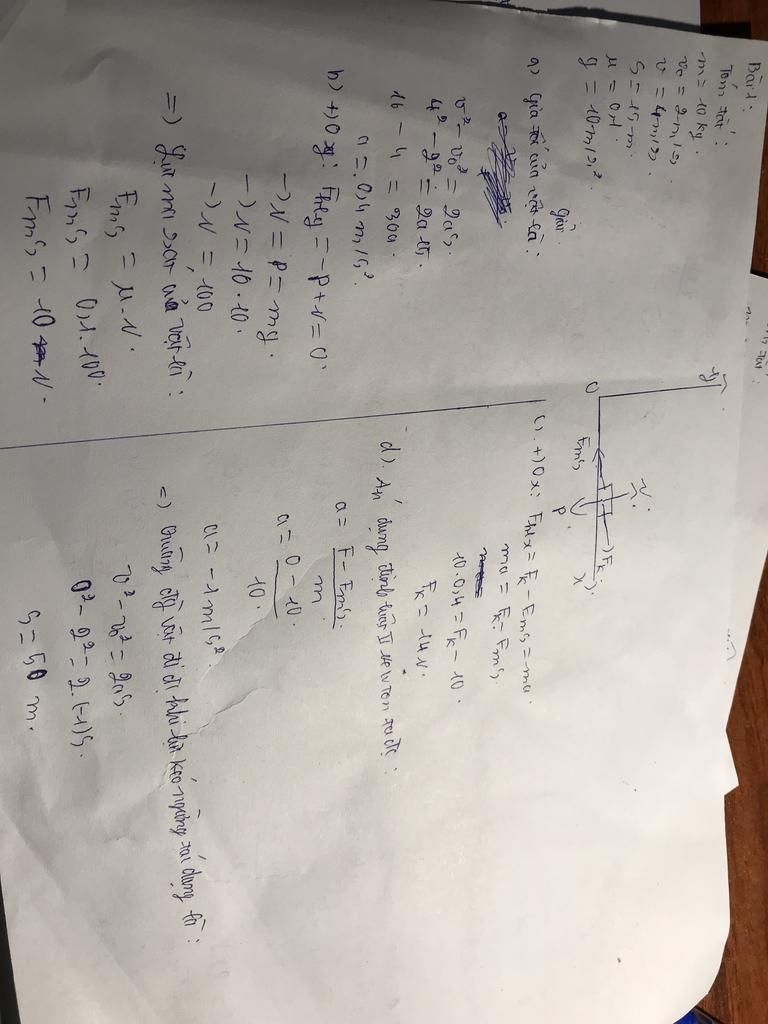 Bài 1:
Tóm tắt:
m = 10 kg.
v₀ = 2 m/s.
v = 4 m/s.
S = 15 m.
μ = 0,1
g = 10 m/s².
Giải.
a) Gia tốc của vật là:
v² - v₀² = 2as.
4² - 2² = 2a.15.
16 - 4 = 30a.
a = 0,4 m/s².
b) +) Oy: Fhly = -P + N = 0.
-) N = P = mg.
-) N = 10.10.
-) N = 100
=) Lực ma sát của vật là:
Fms = μ.N.
Fms = 0,1.100.
Fms = 10 N.
y
O
Fms
N
P
Fk
x
c). +) Ox: Fhlx = Fk - Fms = ma.
ma = Fk - Fms.
10.0,4 = Fk - 10.
Fk = 14 N.
d). Áp dụng định luật II Newton ta đc:
a = F - Fms. / m
a = 0 - 10. / 10.
a = -1 m/s².
=) Quãng đg vật đi đc khi lực kéo ngừng tác dụng là:
v² - v₀² = 2as.
0² - 2² = 2.(-1)S.
S = 50 m.